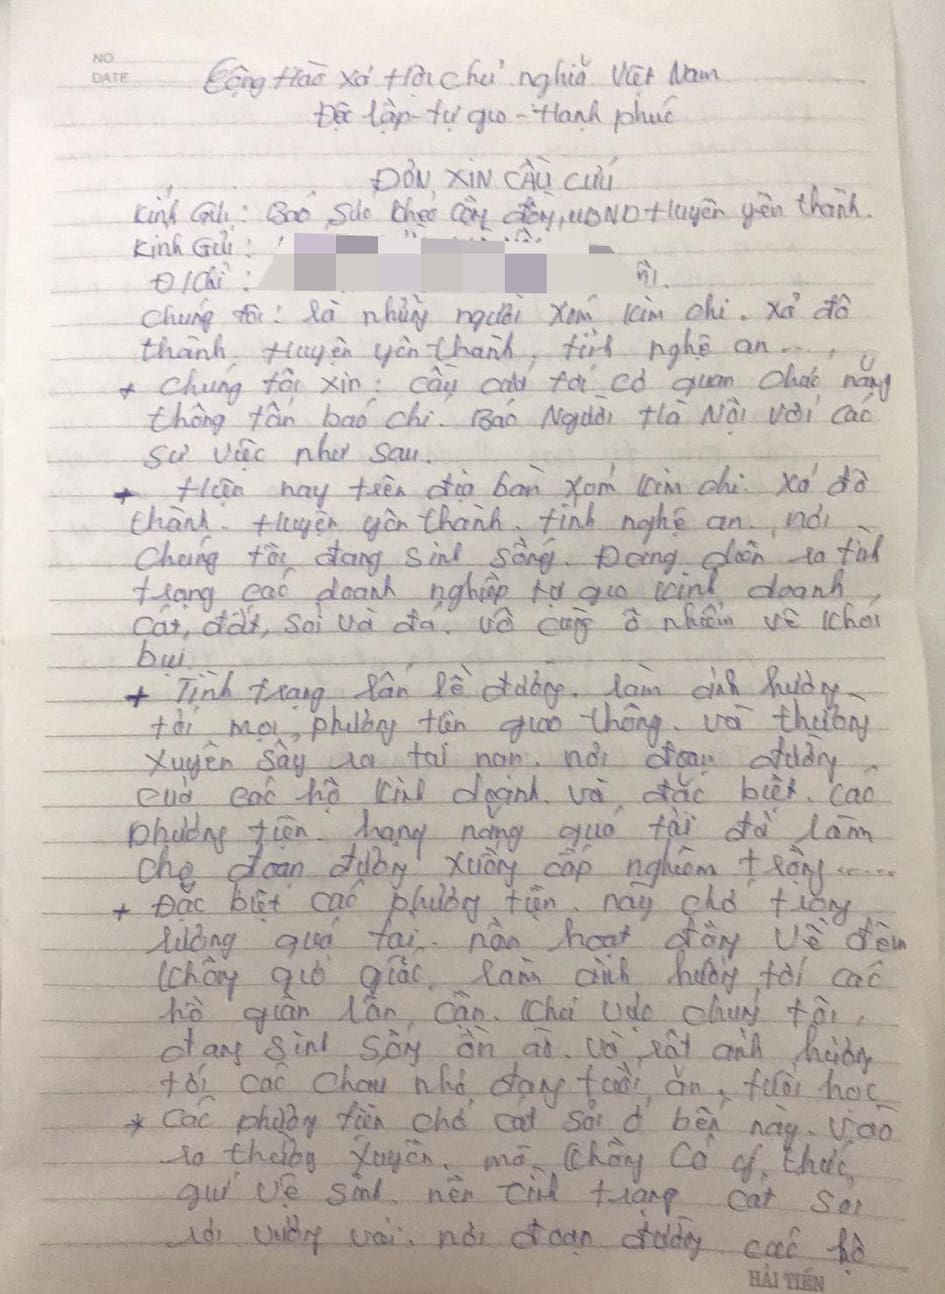 NO
DATE
Cộng Hoà xá Hội chủ nghiã Việt Nam
Độc lập - tự guo - Hạnh phúc
ĐƠN XIN CẦU CỨU
Kính Gửi: Baó Sức khẻo Cộng đồng, UBND Huyện yên thành.
Kính Gửi:
Đ/chỉ:
chúng tôi: là những người xóm kim chi. xả đô
thành. Huyện yên thành, tỉnh nghệ an...,
+ chúng tôi xin: cầu cứu tới cơ quan chức năng
thông tấn baó chí. Baó Người Hà Nội với các
sự việc như sau.
+ Hiện nay trên địa bàn xóm kim chi. xả đô
thành. Huyện yên thành. tỉnh nghệ an. nơi
chúng tôi đang sinh sống. Đang diển ra tình
trạng các doanh nghiệp tự guo kinh doanh,
cát, đất, sỏi và đá. vô cùng ô nhiểm về khói
bụi.
+ Tình trạng lấn lề đường. làm ảnh hưởng
tới mọi phương tiện giao thông. và thường
xuyên sảy ra tai nạn. nơi đoạn đường
của các hộ kinh doanh. và đặc biệt. các
phương tiện hạng nặng quá tải đả làm
cho đoạn đường xuống cấp nghiêm trọng.....
+ Đặc biệt các phương tiện. này chở trọng
lượng quá tải. nên hoạt động về đêm
không giờ giấc. làm ảnh hưởng tới các
hộ guân lân cận. khu vực chúng tôi,
đang sinh sống ồn ào. và rất ảnh hưởng
tới các cháu nhỏ đang tuổi ăn, tuổi học
* các phương tiện chở cát sỏi ở bến này. vào
ra thường xuyên. mà không có ý thức,
giử vệ sinh. nên tình trạng cát sỏi
rơi vương vải. nơi đoạn đường các hộ
HẢI TIẾN